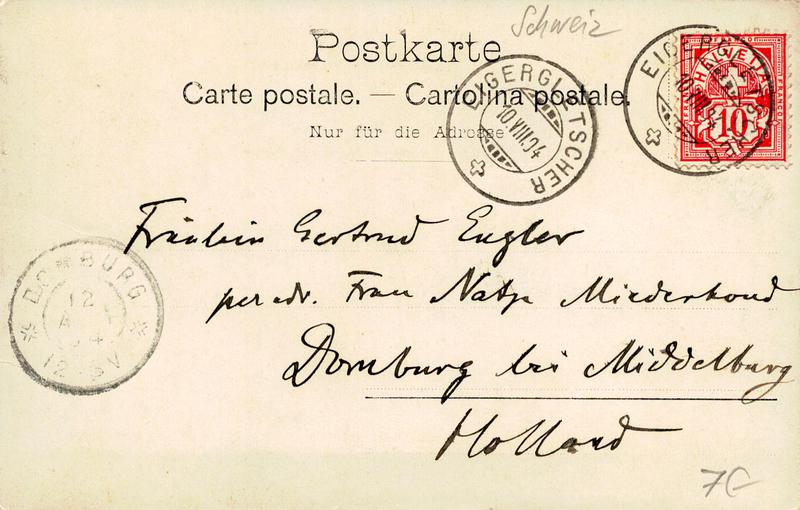 Schweiz
Postkarte
Carte postale. — Cartolina postale.
Nur für die Adresse
EIGERGLETSCHER
10.VIII.04
EIGERGLETSCHER
10.VIII.04
HELVETIA
FRANCO
10
Fräulein Gertrud Engler
per adr. Frau
Domburg bei Middelburg
Holland
DOMBURG
12
12